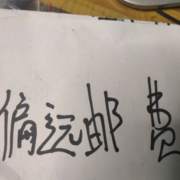 偏远邮费